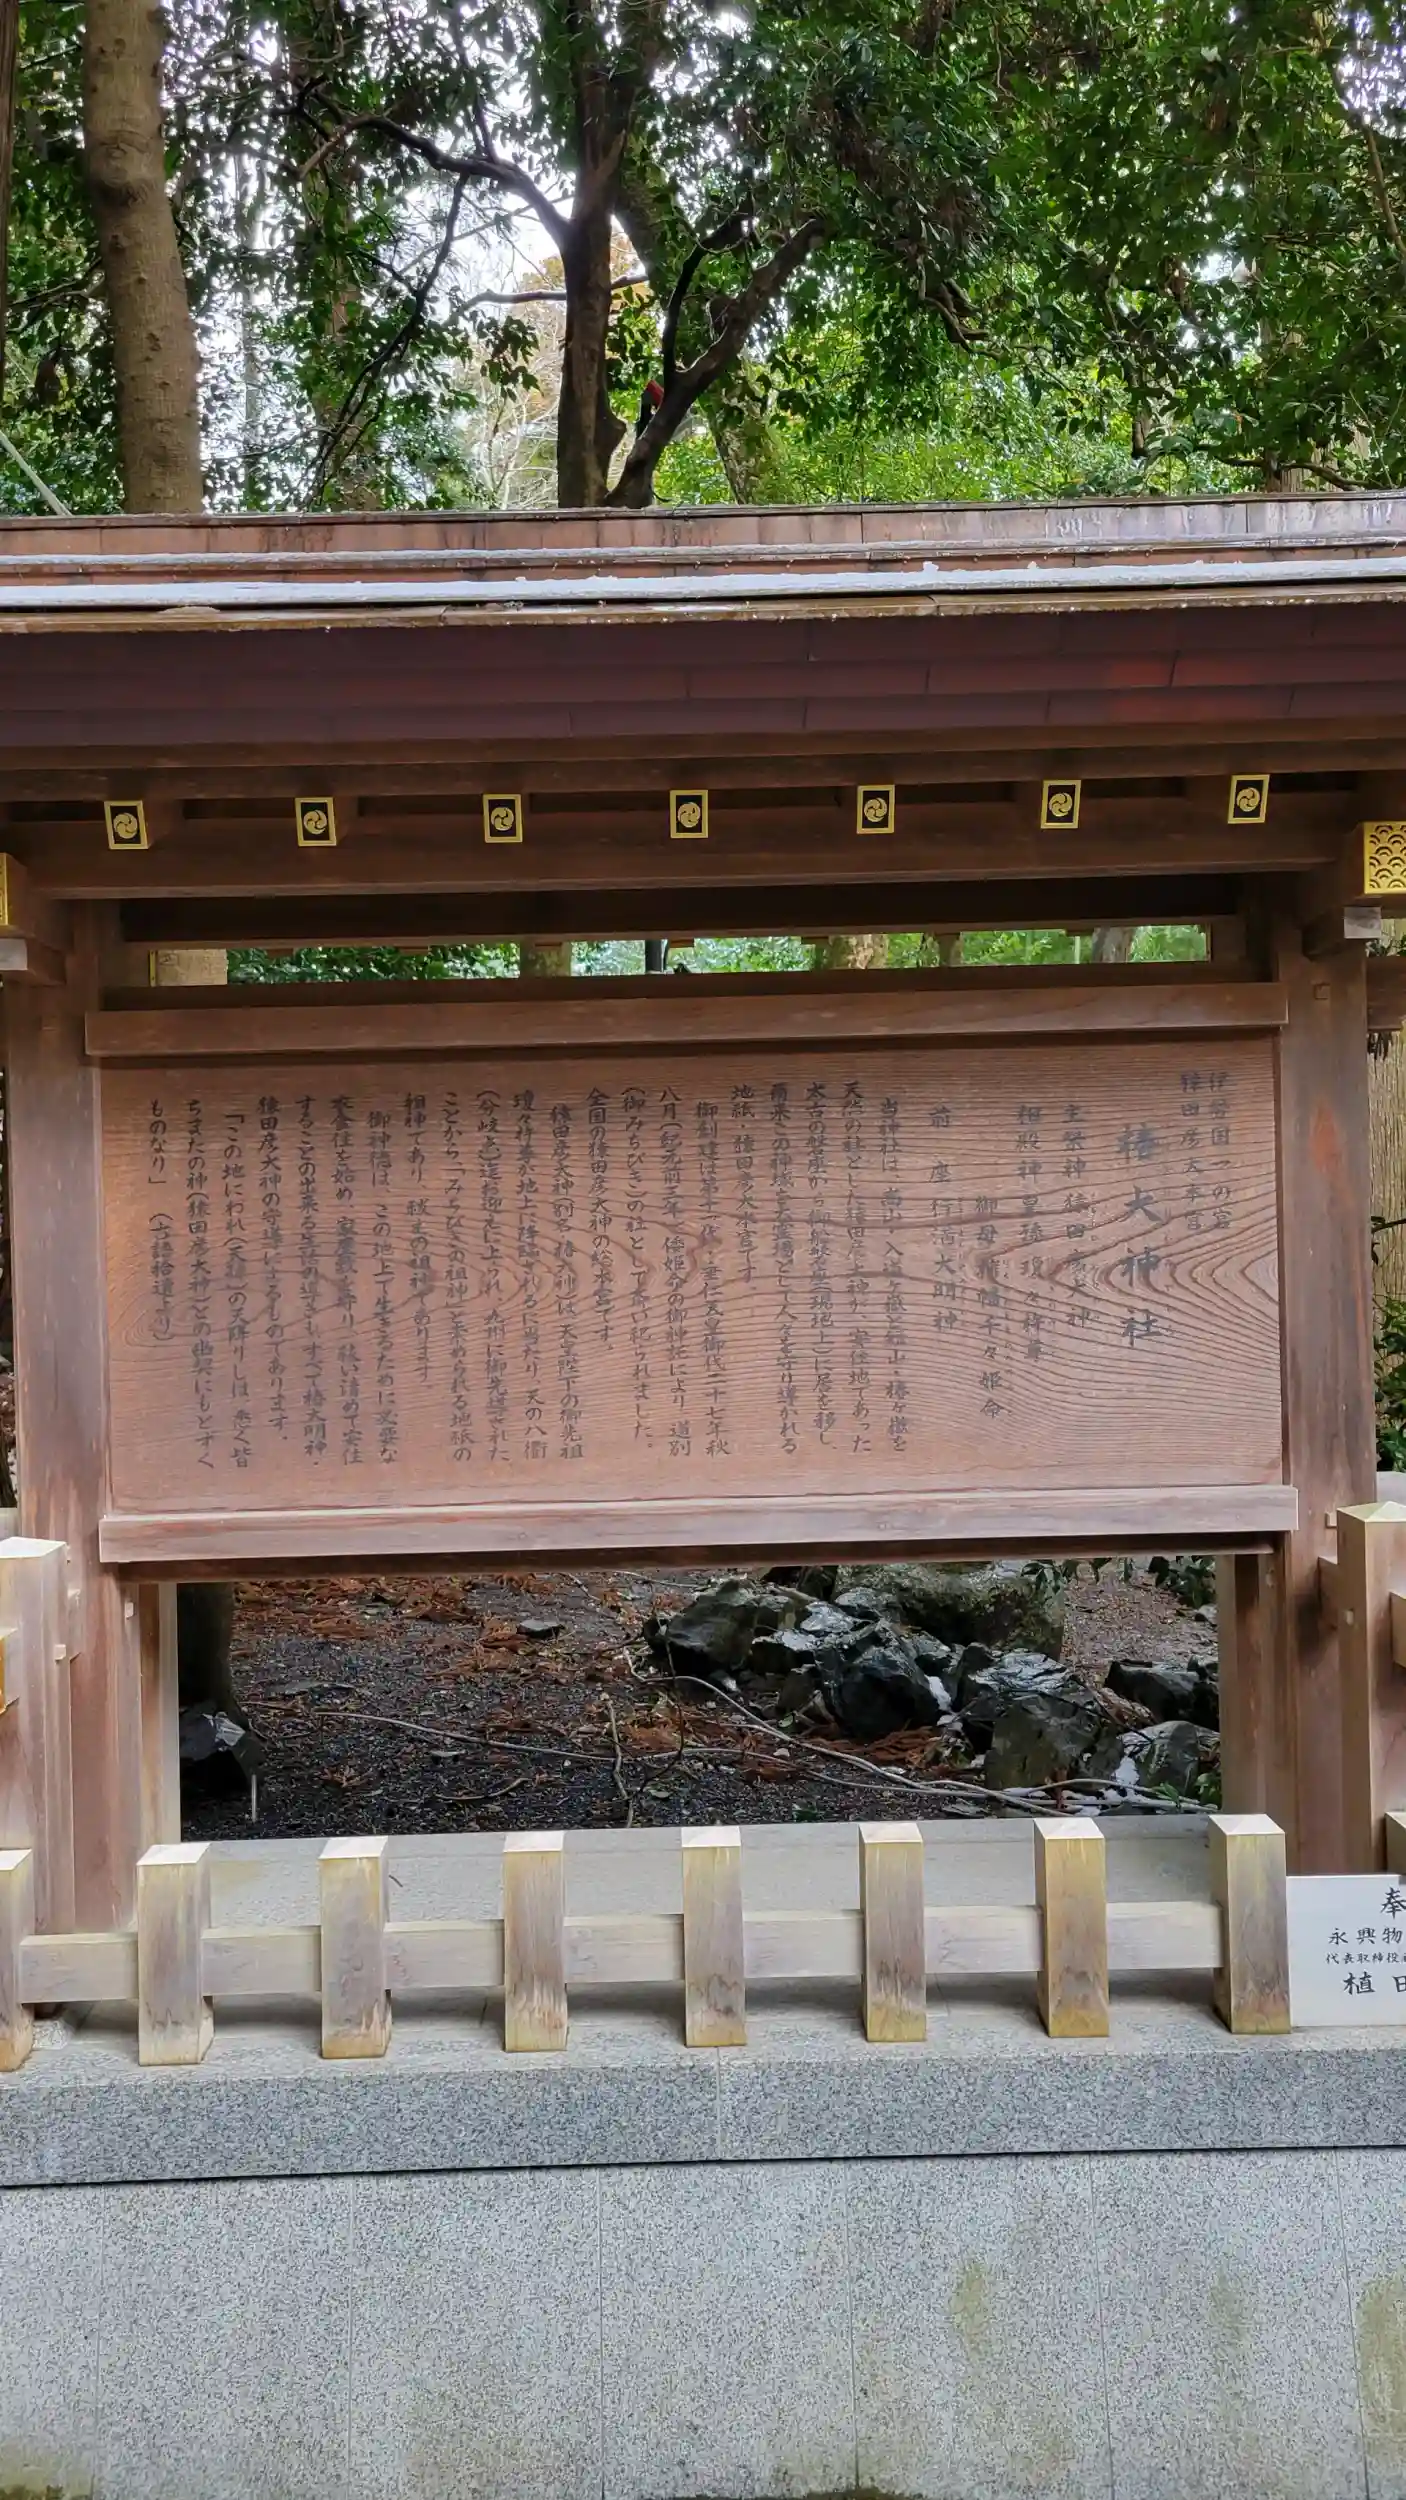 伊勢国一の宮
猿田彦大本宮
椿大神社
主祭神 猿田彦大神
相殿神 皇孫瓊々杵尊
御母栲幡千々姫命
前座 行満大明神
当神社は、高山・入道ヶ嶽と短山・椿ヶ嶽を
天然の社とした猿田彦大神の、実住地であった
太古の磐座から御船磐座(現地上)に居を移し、
爾来この神域を大霊場として人々を守り導かれる
地祇・猿田彦大本宮です。
御創建は第十一代・垂仁天皇御代二十七年秋
八月(紀元前三年)倭姫命の御神託により、道別
(御みちびき)の社として斎い祀られました。
全国の猿田彦大神の総本宮です。
猿田彦大神(別名・椿大神)は、天皇陛下の御先祖
瓊々杵尊が地上に降臨されるに当たり、天の八衢
(分岐点)迄お迎えに上られ、九州に御先導された
ことから「みちびきの祖神」と崇められる地祇の
祖神であり、祓まの祖神であります。
御神徳は、この地上で生きるために必要な
衣食住を始め、家屋敷を守り、祓い清めて安住
することの出来る生活の導きも、すべて椿大明神・
猿田彦大神の守導によるものであります。
「この地にわれ(天孫)の天降りしは、悉く皆
ちまたの神(猿田彦大神)との幽契にもとずく
ものなり」 (古語拾遺より)
奉
永興物
代表取締役
植田